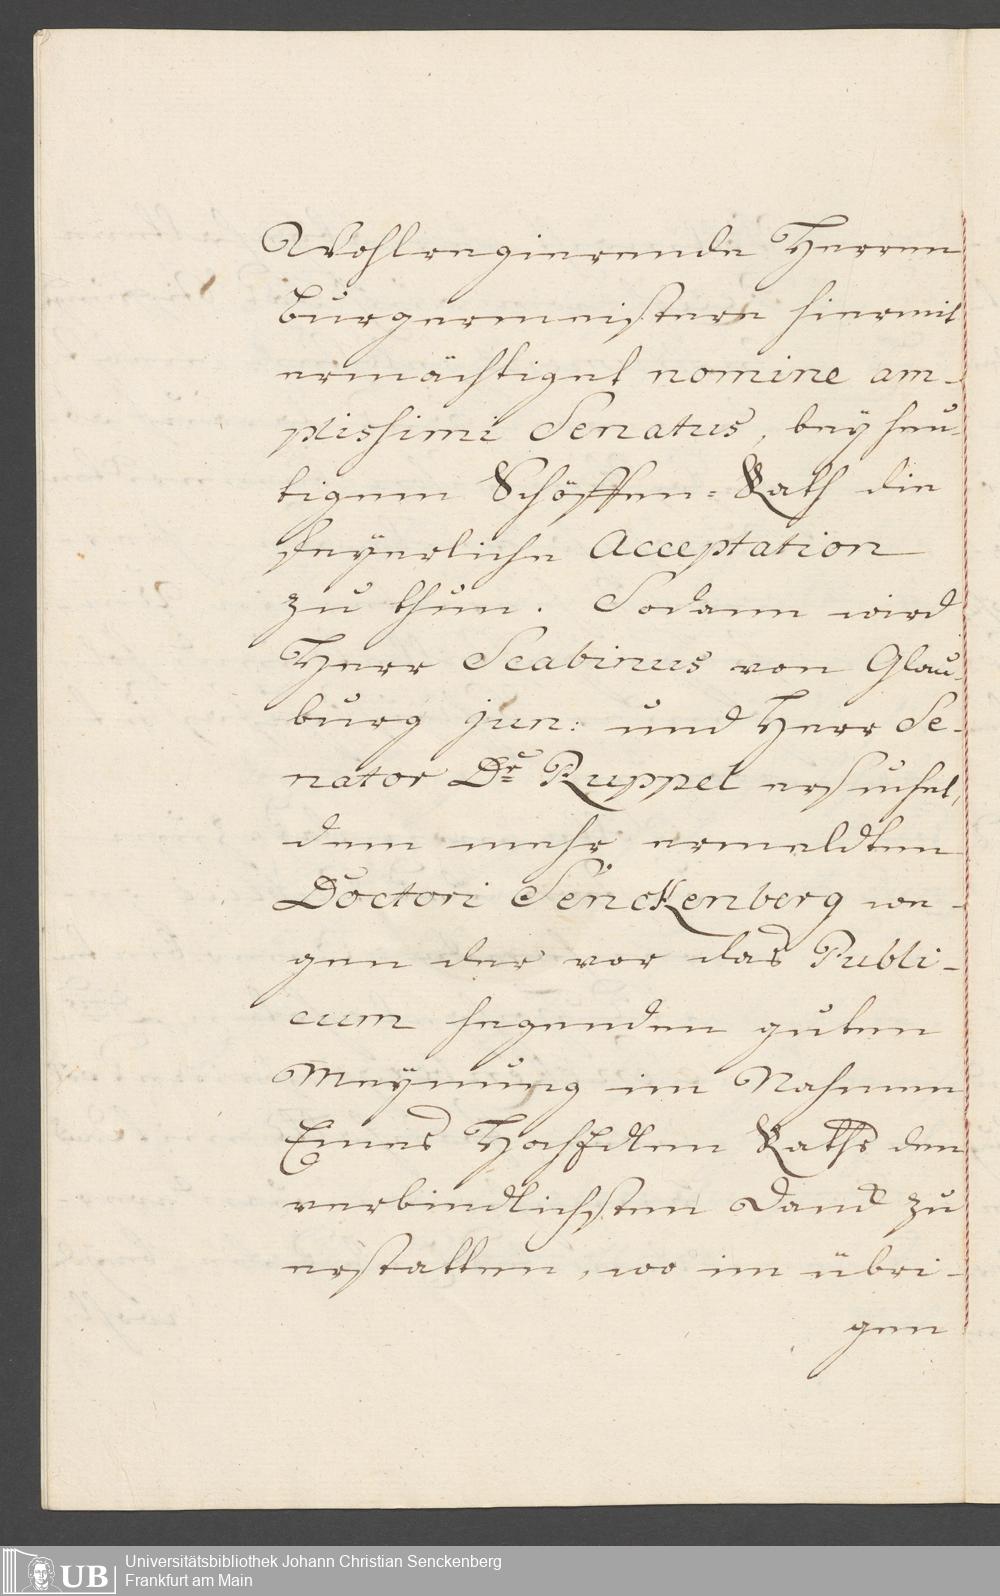 Wohlregierende Herren
Burgermeistere hiermit
ermächtiget nomine am-
plissimi Senatus, bey heu-
tigem Schöffen=Rath die
feyerliche Acceptation
zu thun. Sodann wird
Herr Scabinus von Glau-
burg jun: und Herr Se-
nator Dr Ruppel ersuchet,
dem mehr ermeldten
Doctori Senckenberg we-
gen der vor das Publi-
cum hegenden guten
Meynung im Nahmen
Eines HochEdlen Raths den
verbindlichsten Danck zu
erstatten, wo im übri-
gen
UB
Universitätsbibliothek Johann Christian Senckenberg
Frankfurt am Main